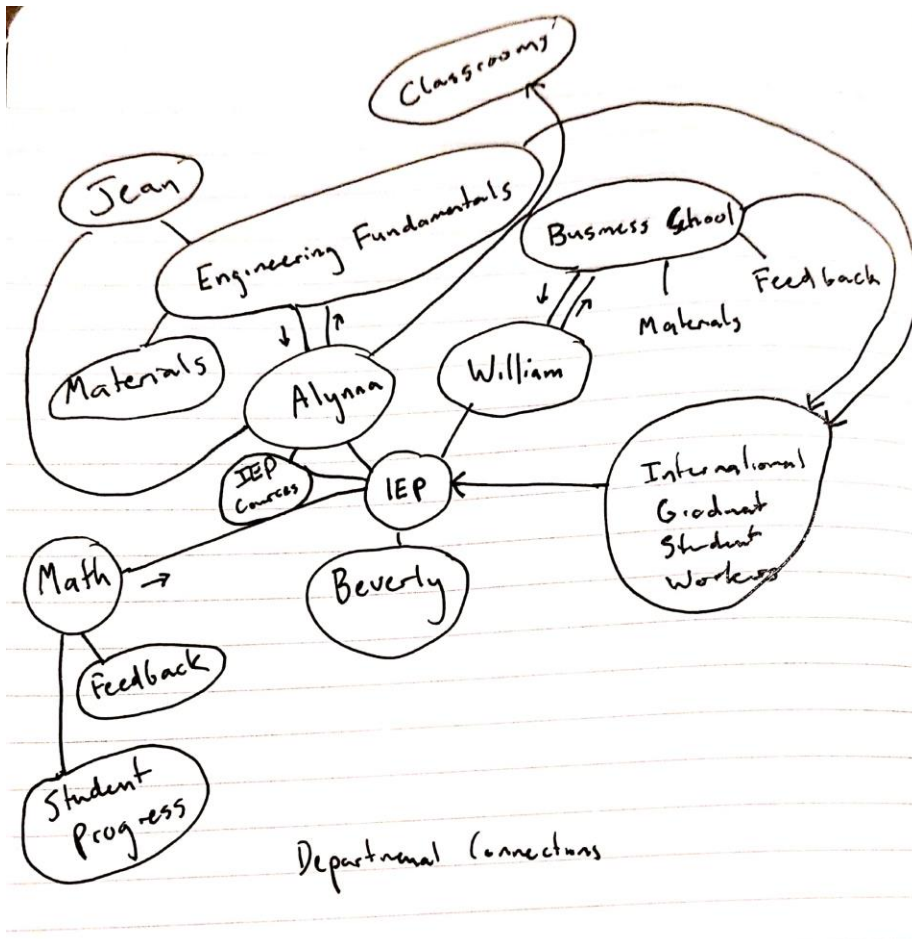 Classrooms
Jean
Engineering Fundamentals
Business School
Feedback
Materials
Materials
Alynna
William
IEP
Courses
IEP
International
Graduat
Student
Workers
Math
Beverly
Feedback
Student
Progress
Departmenal Connections